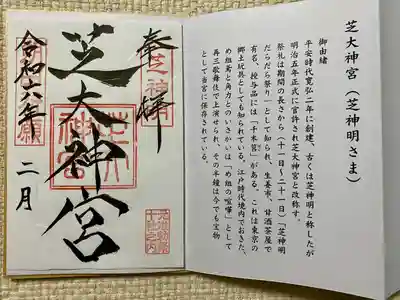 芝大神宮（芝神明さま）
御由緒
平安時代寛弘二年に創建、古くは芝神明と称したが
明治五年正式に官許され芝大神宮と改称す。
祭礼は期間の長さから（十一日〜二十一日）「芝神明
だらだら祭り」として知られ、生姜市、甘酒茶屋で
有名、授与品には「千木筥」がある。これは東京の
郷土玩具としても知られている。江戸時代境内でおきた、
め組鳶と角力とのいさかいは「め組の喧嘩」として
再三歌舞伎で上演せられ、その半鐘は今でも宝物
として当宮に保存されている。
奉拝
芝大神宮
令和六年
二月